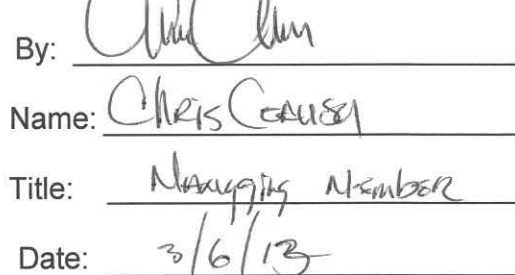 By:
Name: Chris
Title: Managing Member
Date: 3/6/13